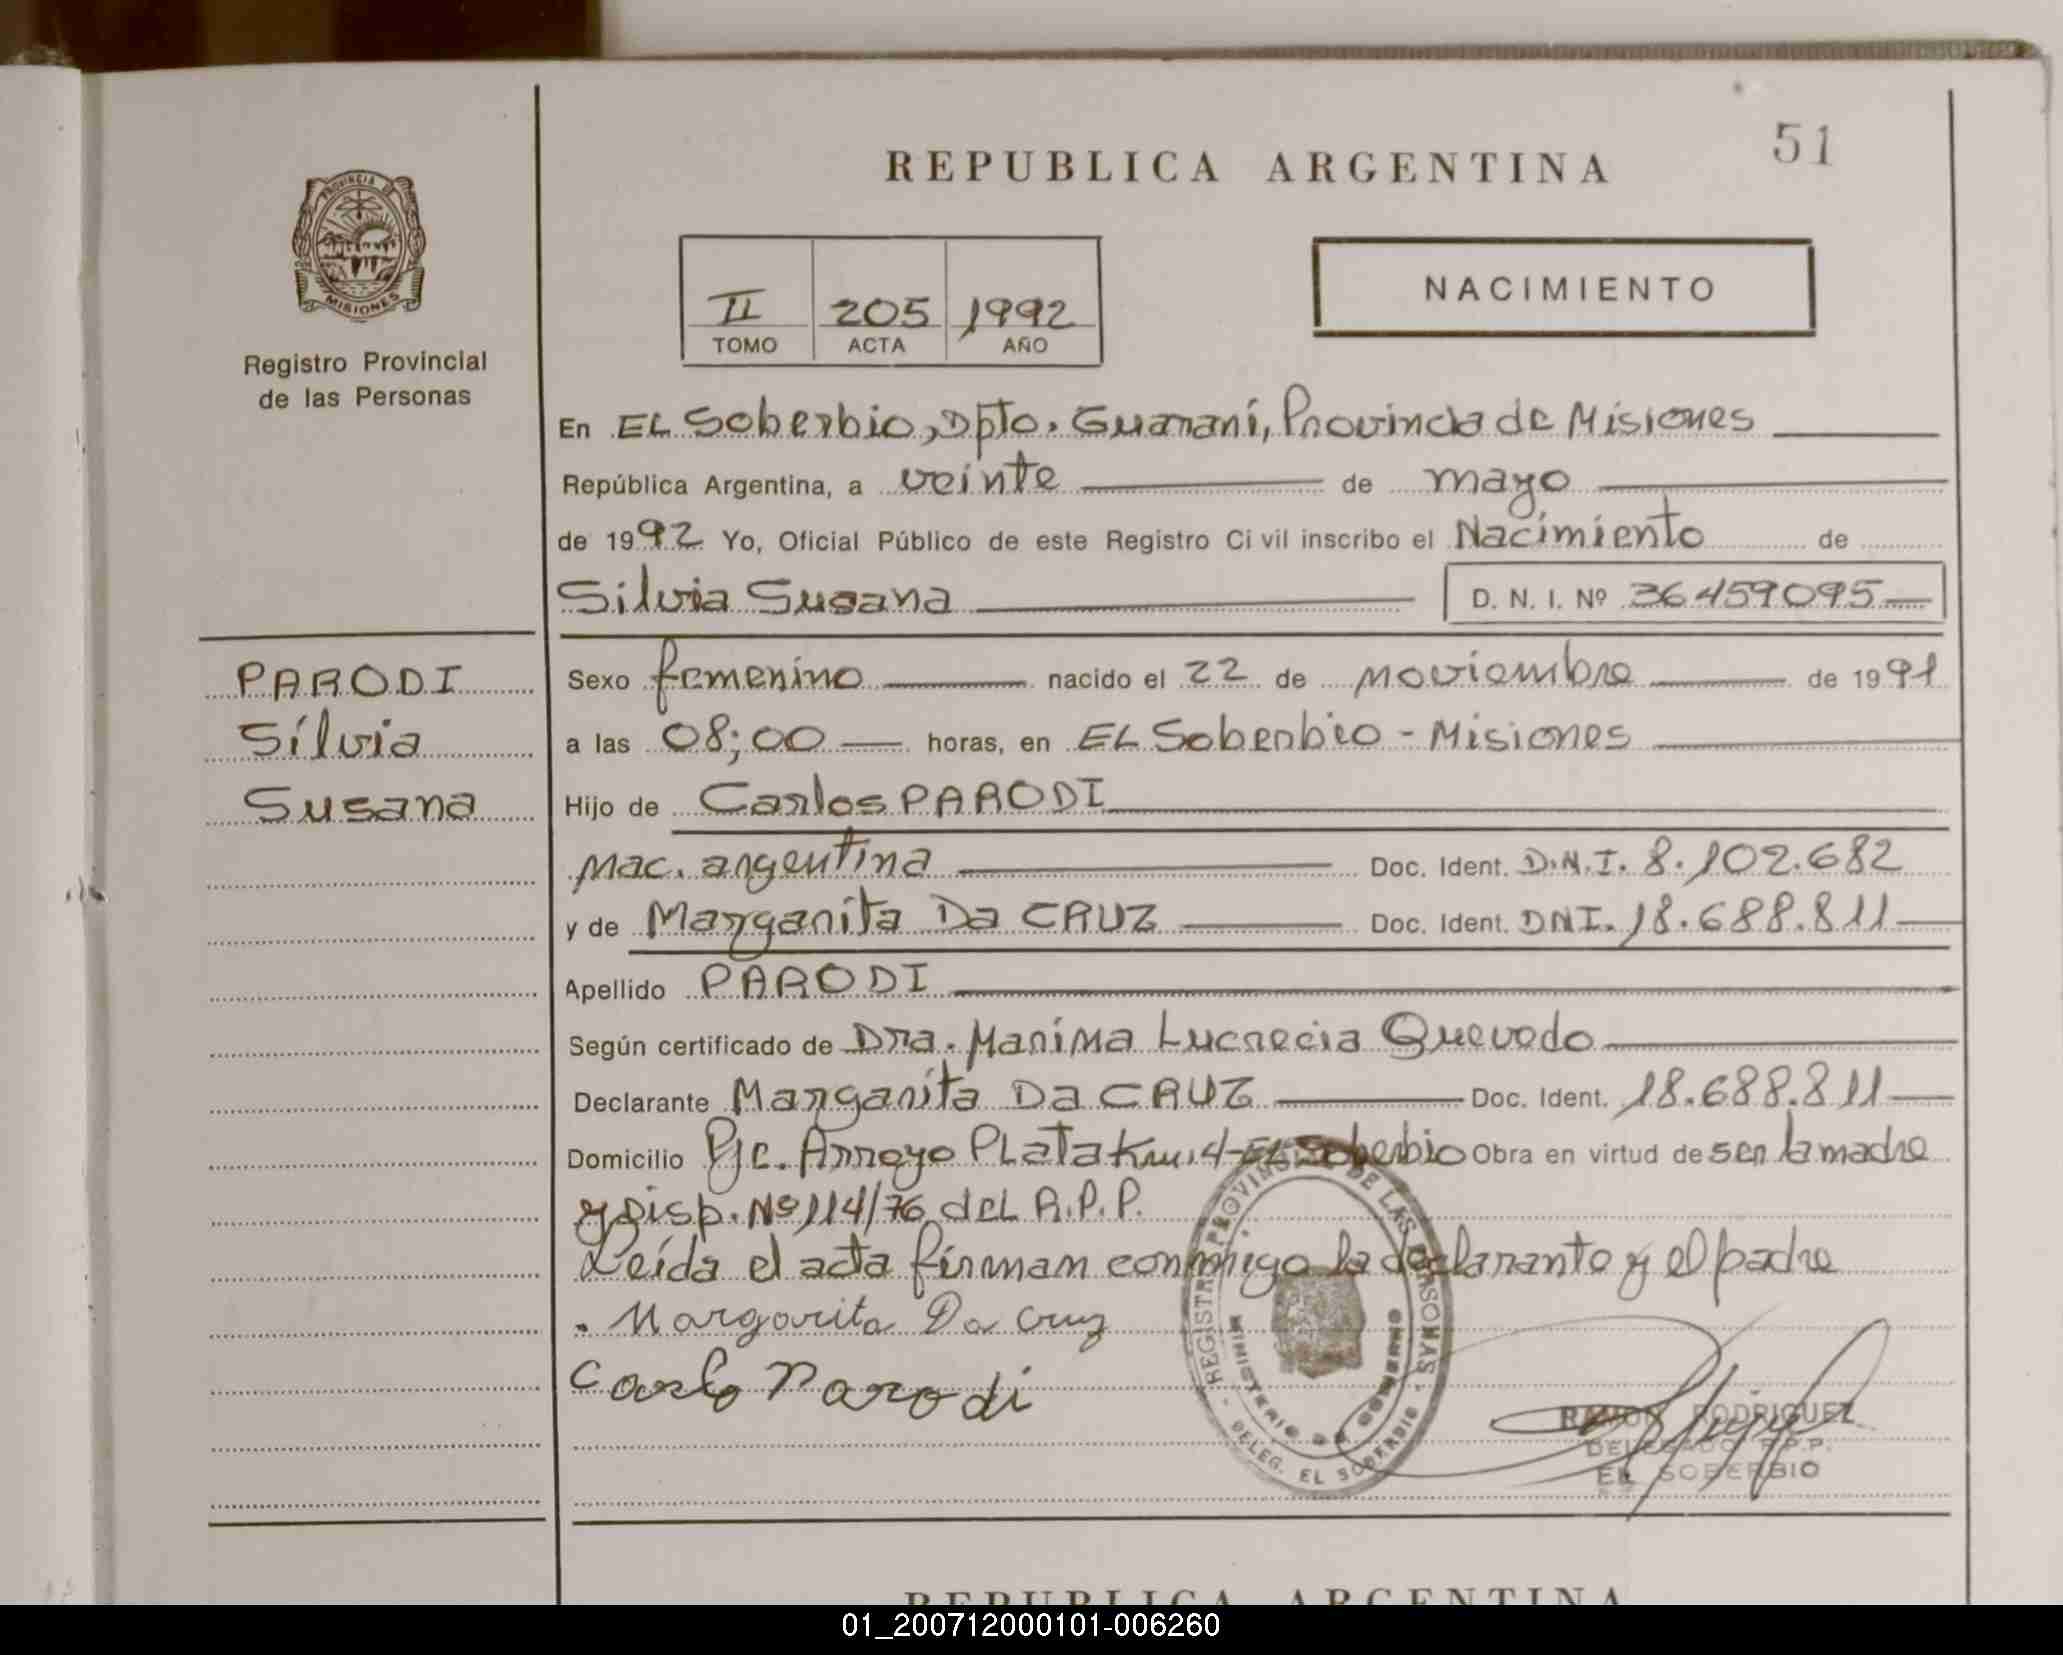 51
REPUBLICA ARGENTINA
PROVINCIA DE
MISIONES
Registro Provincial
de las Personas
II 205 1992
TOMO ACTA AÑO
NACIMIENTO
En EL Soberbio, Dpto. Guaraní, Provincia de Misiones
República Argentina, a veinte de mayo
de 1992 Yo, Oficial Público de este Registro Civil inscribo el Nacimiento de
Silvia Susana D. N. I. Nº 36459095
PARODI
Silvia
Susana
Sexo femenino nacido el 22 de noviembre de 1991
a las 08;00 horas, en EL Soberbio - Misiones
Hijo de Carlos PARODI
Nac. argentina Doc. Ident. D.N.I. 8.102.682
y de Margarita Da CRUZ Doc. Ident. DNI. 18.688.811
Apellido PARODI
Según certificado de Dra. Marina Lucrecia Quevedo
Declarante Margarita Da CRUZ Doc. Ident. 18.688.811
Domicilio Pje. Arroyo PLata Km. 4-EL Soberbio Obra en virtud de ser la madre
y Disp. Nº 114/76 deL R.P.P.
Leída el acta firman conmigo la declarante y el padre
. Margarita Da Cruz
Carlo Parodi
REGISTRO PROVINCIAL DE LAS PERSONAS
MINISTERIO DE GOBIERNO
DELEG. EL SOBERBIO
RAMON RODRIGUEZ
DELEGADO R.P.P.
EL SOBERBIO
REPUBLICA ARGENTINA
01_200712000101-006260